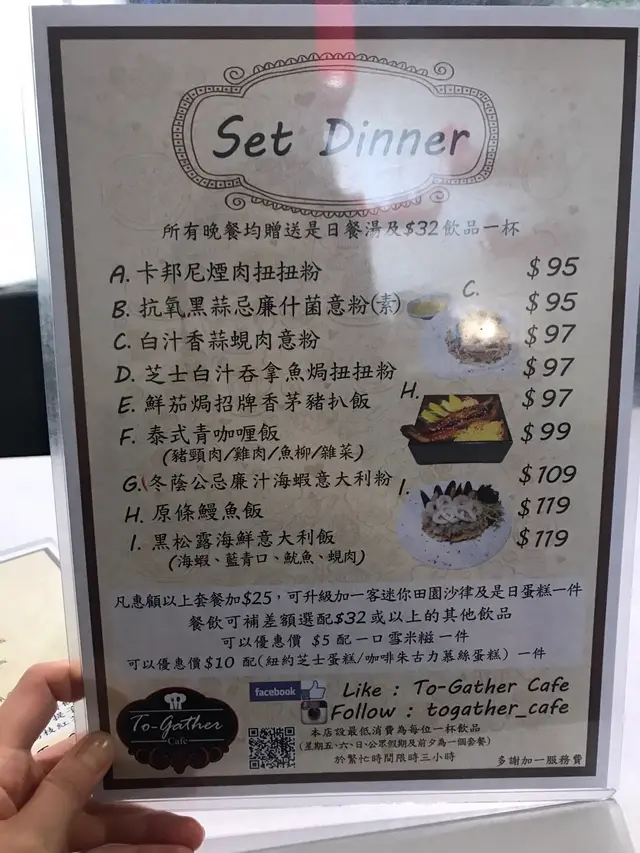 Set Dinner
所有晚餐均贈送是日餐湯及$32飲品一杯
A. 卡邦尼煙肉扭扭粉 $95
B. 抗氧黑蒜忌廉什菌意粉(素) $95
C. 白汁香蒜蜆肉意粉 $97
D. 芝士白汁吞拿魚焗扭扭粉 $97
E. 鮮茄焗招牌香茅豬扒飯 $97
F. 泰式青咖喱飯 $99
(豬頸肉/雞肉/魚柳/雜菜)
G. 冬蔭公忌廉汁海蝦意大利粉 $109
H. 原條鰻魚飯 $119
I. 黑松露海鮮意大利飯 $119
(海蝦、藍青口、魷魚、蜆肉)
C.
H.
I.
凡惠顧以上套餐加$25，可升級加一客迷你田園沙律及是日蛋糕一件
餐飲可補差額選配$32或以上的其他飲品
可以優惠價 $5 配一口雪米糍一件
可以優惠價$10 配(紐約芝士蛋糕/咖啡朱古力慕絲蛋糕) 一件
facebook
Like : To-Gather Cafe
Follow : togather_cafe
To-Gather
Cafe
本店設最低消費為每位一杯飲品
(星期五、六、日、公眾假期及前夕為一個套餐)
於繁忙時間限時三小時
多謝加一服務費